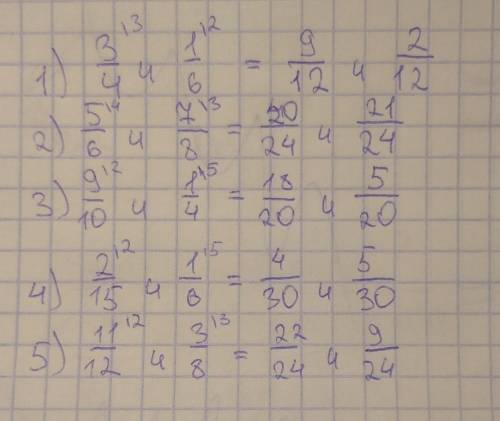 1) 3/4 \3 и 1/6 \2 = 9/12 и 2/12
2) 5/6 \4 и 7/8 \3 = 20/24 и 21/24
3) 9/10 \2 и 1/4 \5 = 18/20 и 5/20
4) 2/15 \2 и 1/6 \5 = 4/30 и 5/30
5) 11/12 \2 и 3/8 \3 = 22/24 и 9/24